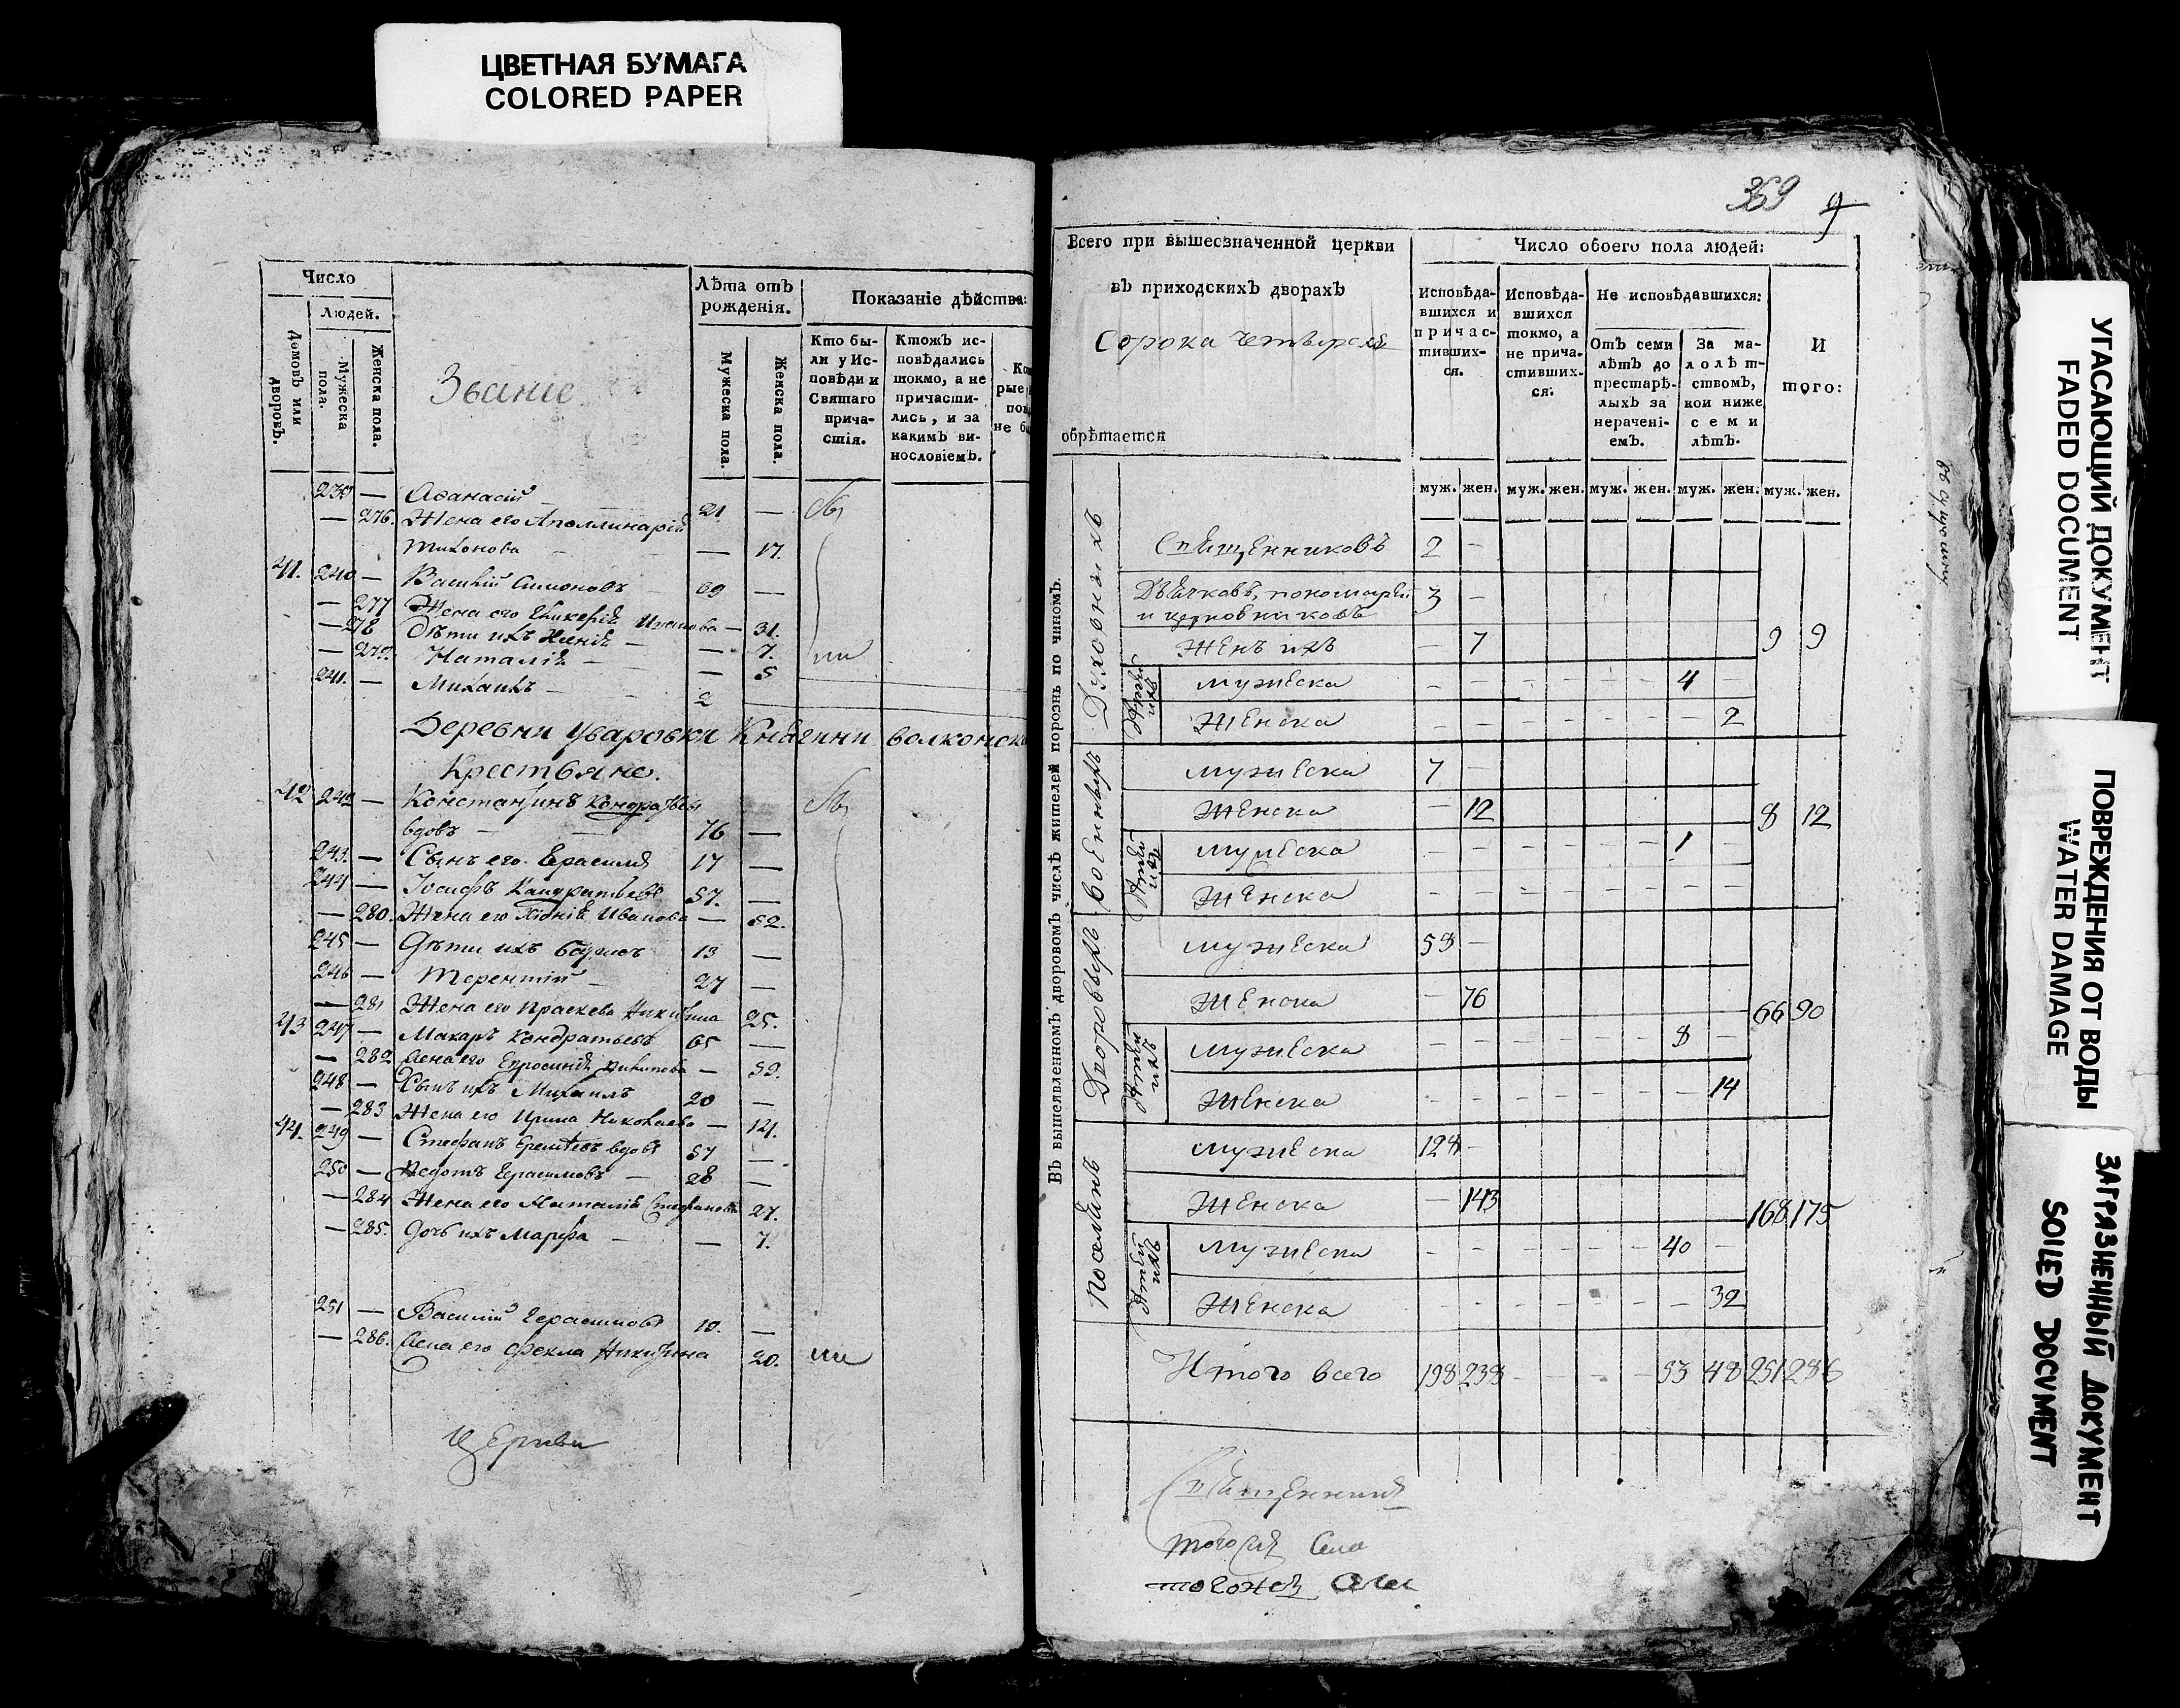 ЦВЕТНАЯ БУМАГА
COLORED PAPER
Число
Людей.
Домовъ или дворовъ.
Мужеска пола.
Женска пола.
Званіе
Лѣта отъ рожденія.
Мужеска пола.
Женска пола.
Показаніе дѣйства:
Кто бы-
ли у Ис-
повѣди и
Святаго
прича-
стія.
Ктожъ ис-
повѣдались
токмо, а не
причасти-
лись, и за
какимъ ви-
нословіемъ.
239 — Аѳанасій 21 —
— 276. Жена его Аполлинарія
Тихонова — 17.
41. 240 — Василій Симоновъ 69 —
— 277 Жена его Гликерія — 31.
— 278 Дѣти ихъ Ксенія — 7.
— 279. Наталія — 5
241. — Михаилъ 2
Деревни Уваровки Княгини Волконск
Крестьяне.
42 242 — Константинъ Кондратьевъ
вдовъ — 76 —
243. — Сынъ его Герасимъ 17 —
244 — Іосифъ Кондратьевъ 57. —
— 280. Жена его Иванова — 52.
245 — Дѣти ихъ 13 —
246 — Терентій 27 —
— 281 Жена его Праскева Никитина 25.
43 247 — Макаръ Кондратьевъ 65 —
— 282 Жена его Евросинія — 59.
248 — Сынъ ихъ Михаилъ 20 —
— 283 Жена его Ирина Николаева — 121.
44. 249 — Стефанъ вдовъ 57 —
250 — Ѳедотъ Герасимовъ — 28 —
— 284 Жена его Наталія Стефанова 27.
— 285. Дочь ихъ Марфа — 7.
251 — Василій Герасимовъ 19. —
— 286. Жена его Фекла Никитина 20.
Церкви
369 9
Всего при вышеозначенной церкви
въ приходскихъ дворахъ
Сорока четырехъ
обрѣтается
Число обоего пола людей:
Исповѣда-
вшихся и
причас-
тивших-
ся.
Исповѣда-
вшихся
токмо, а
не прича-
стивших-
ся:
Не исповѣдавшихся:
Отъ семи
лѣтъ до
престарѣ-
лыхъ за
нерачені-
емъ.
За ма-
лолѣт-
ствомъ,
кои ниже
семи
лѣтъ.
И
того:
муж. жен. муж. жен. муж. жен. муж. жен. муж. жен.
Въ вышеявленномъ дворовомъ числѣ жителей порознь по чиномъ.
Духовныхъ
Священниковъ 2 —
Дьячковъ, пономарей 3 —
и церковниковъ
Женъ ихъ — 7 9 9
Дѣтей ихъ
Мужеска 4
Женска 2
Военныхъ
Мужеска 7 —
Женска — 12 8 12
Дѣтей ихъ
Мужеска 1
Женска
Дворовыхъ
Мужеска 58 —
Женска — 76 66 90
Дѣтей ихъ
Мужеска 8
Женска 14
Поселянъ
Мужеска 128 —
Женска — 143 168 175
Дѣтей ихъ
Мужеска 40
Женска 32
Итого всего 198 238 53 48 251 286
Священникъ
села
УГАСАЮЩИЙ ДОКУМЕНТ
FADED DOCUMENT
ПОВРЕЖДЕНИЯ ОТ ВОДЫ
WATER DAMAGE
ЗАГРЯЗНЕННЫЙ ДОКУМЕНТ
SOILED DOCUMENT